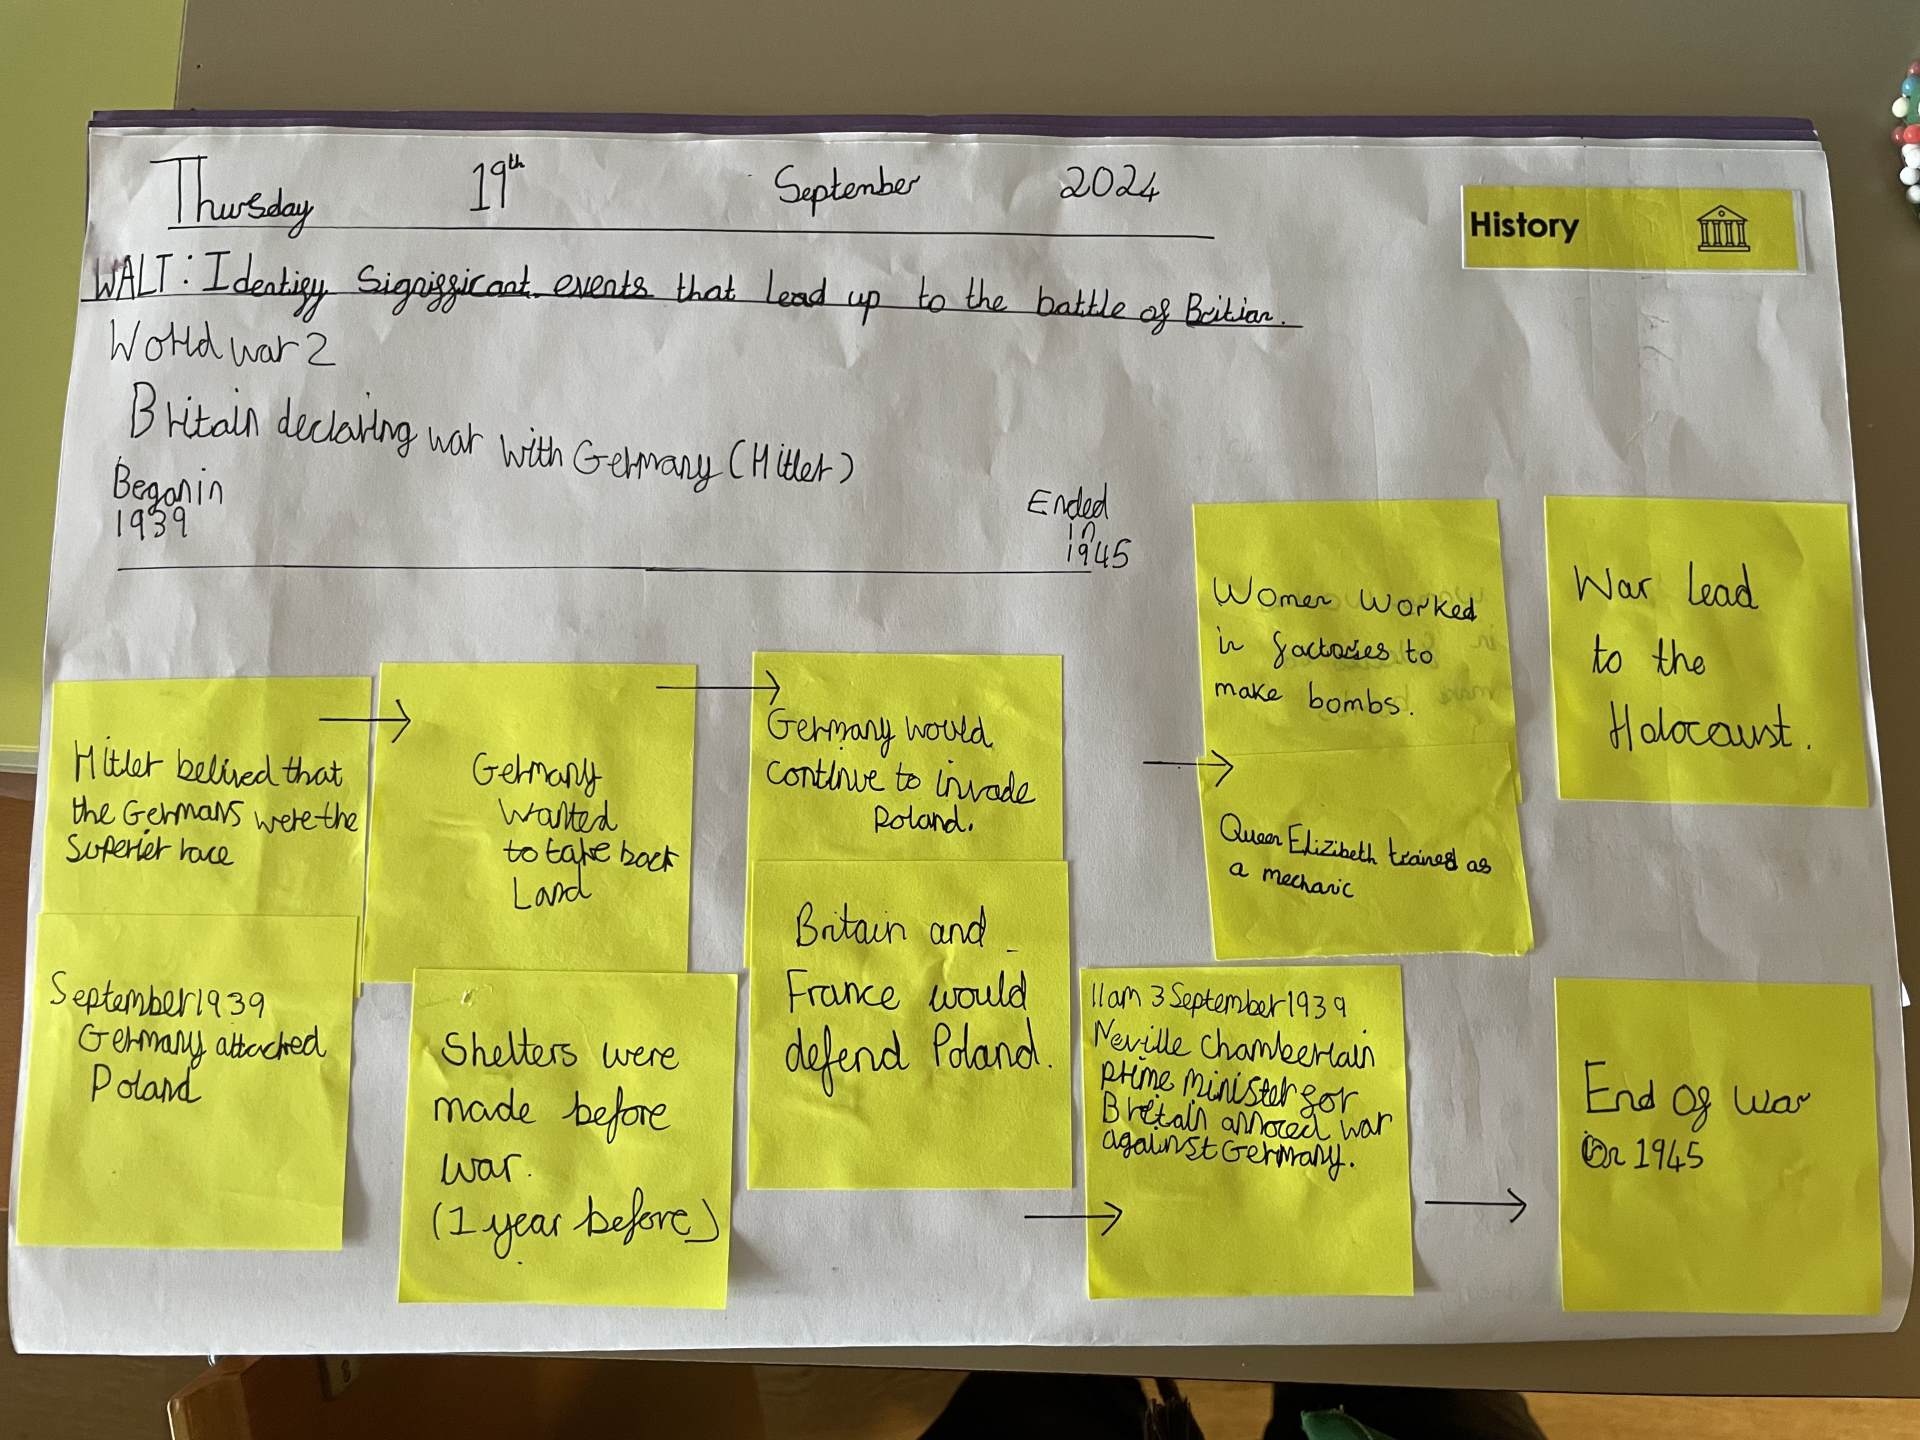 Thursday 19th September 2024
History
WALT: Identify Significant events that lead up to the battle of Britian.
World war 2
Britain declaring war with Germany (Hitler)
Began in
1939
Ended
in
1945
Hitler belived that
the Germans were the
Superier race
September 1939
Germany attacked
Poland
Germany
Wanted
to take back
Land
Shelters were
made before
war.
(1 year before)
Germany would
continue to invade
Poland.
Britain and
France would
defend Poland.
Women worked
in factories to
make bombs.
Queen Elizibeth trained as
a mechanic
11am 3 September 1939
Neville Chamberlain
prime minister for
Britain annoced war
against Germany.
War lead
to the
Holocaust.
End of war
in 1945